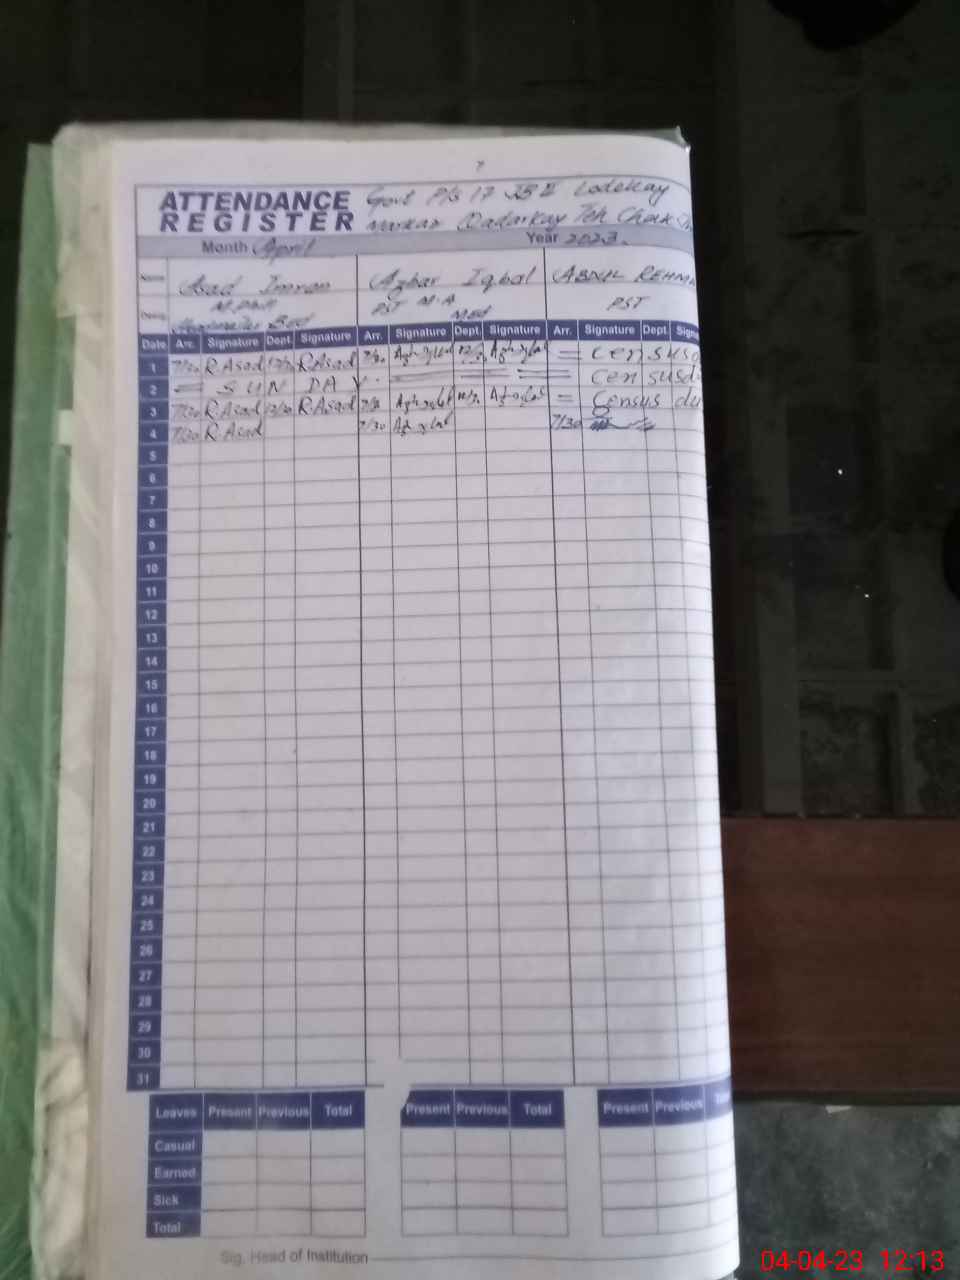 ATTENDANCE REGISTER
Govt P/S 17 JB II Lodekay
Markaz Qadarkay Teh
Month April Year 2023.
Name Asad Imran Azhar Iqbal REHMA
Desig. M.Phil PST M.A PST
B.Ed M.Ed
Date Arr. Signature Dept. Signature Arr. Signature Dept. Signature Arr. Signature Dept. Signa
1 7/30 R.Asad R.Asad 7/30 = Census
2 = SUN DAY. Census
3 7/30 R.Asad R.Asad = Census du
4 7/30 R.Asad 7/30 7/30
5
6
7
8
9
10
11
12
13
14
15
16
17
18
19
20
21
22
23
24
25
26
27
28
29
30
31
Leaves Present Previous Total Present Previous Total Present Previous
Casual
Earned
Sick
Total
Sig. Head of Institution
04-04-23 12:13